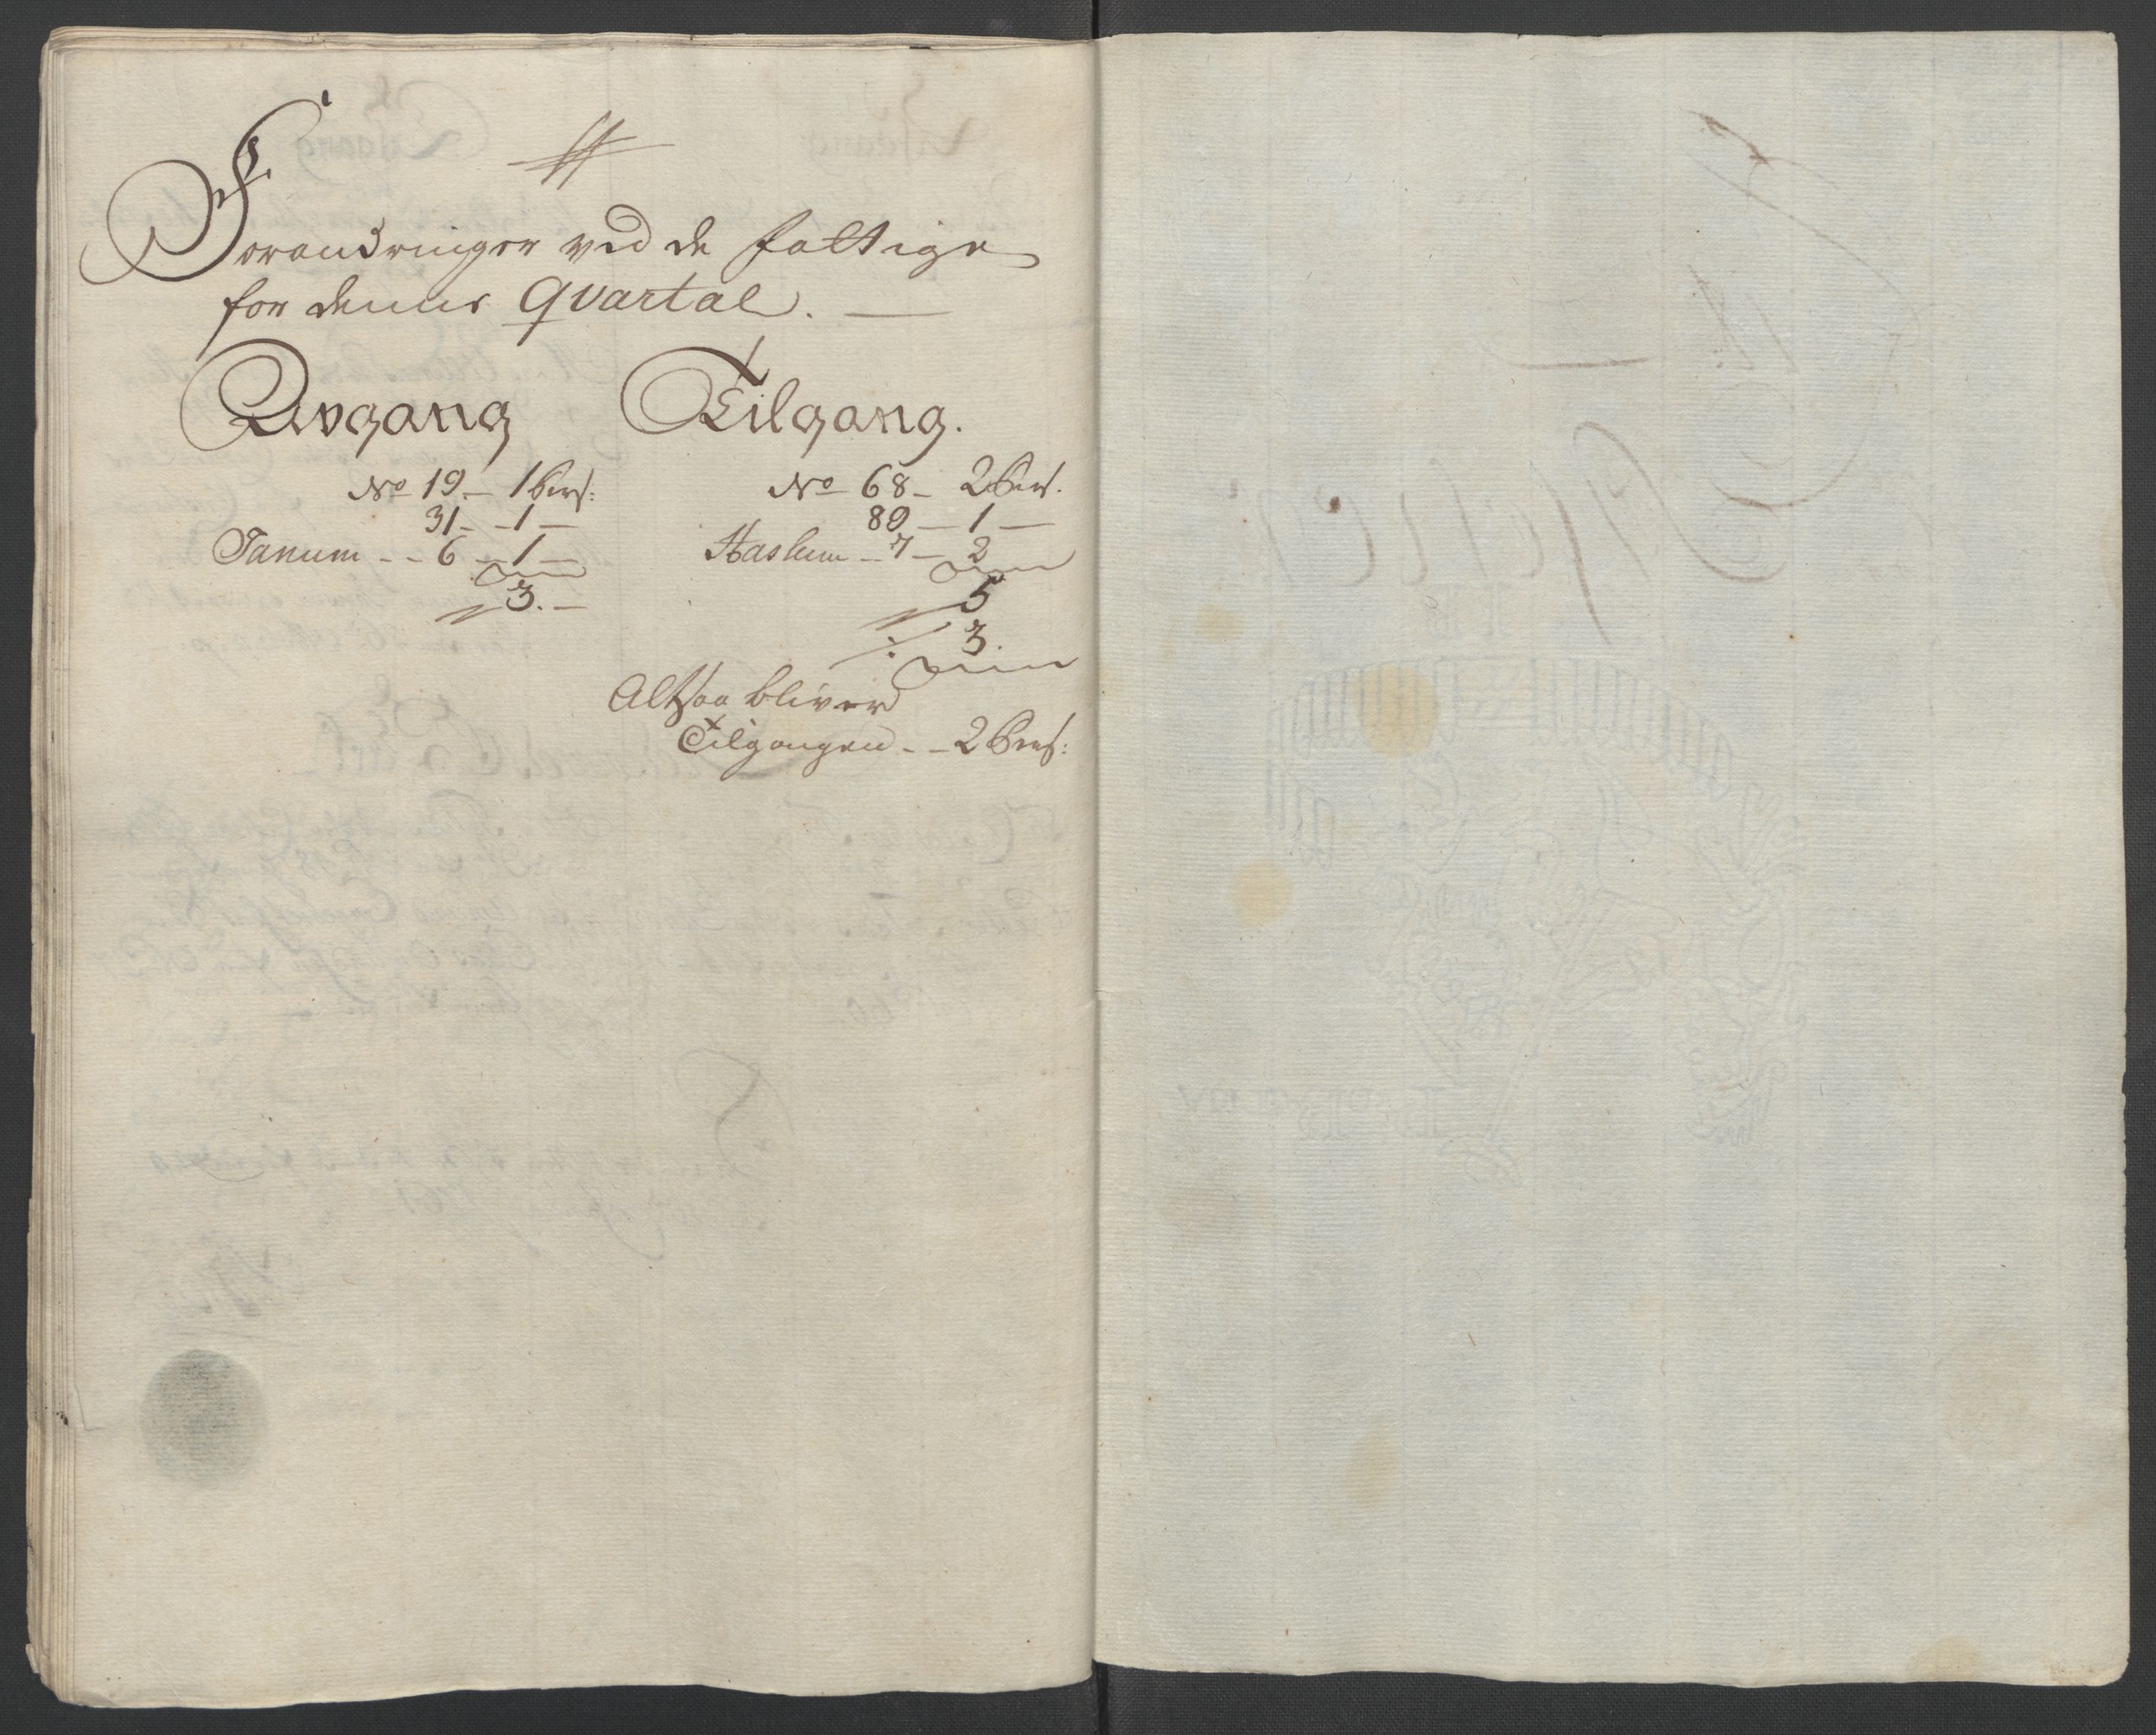 Forandringer ved de fattige
for dennes Qvartal. —
Avgang
No 19. — 1 Pers:
31 - - 1 —
Tanum - - 6 - 1 —
3. —
Tilgang.
No 68 - 2 Pers.
89 — 1 —
Haslum - - 7 — 2
5
÷ 3.
Altsaa bliver
Tilgangen - - 2 Pers: